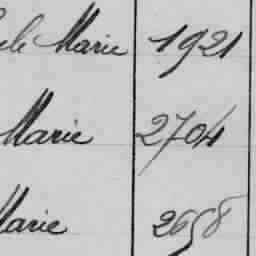 Marie 1921
Marie 2704
Marie 2658